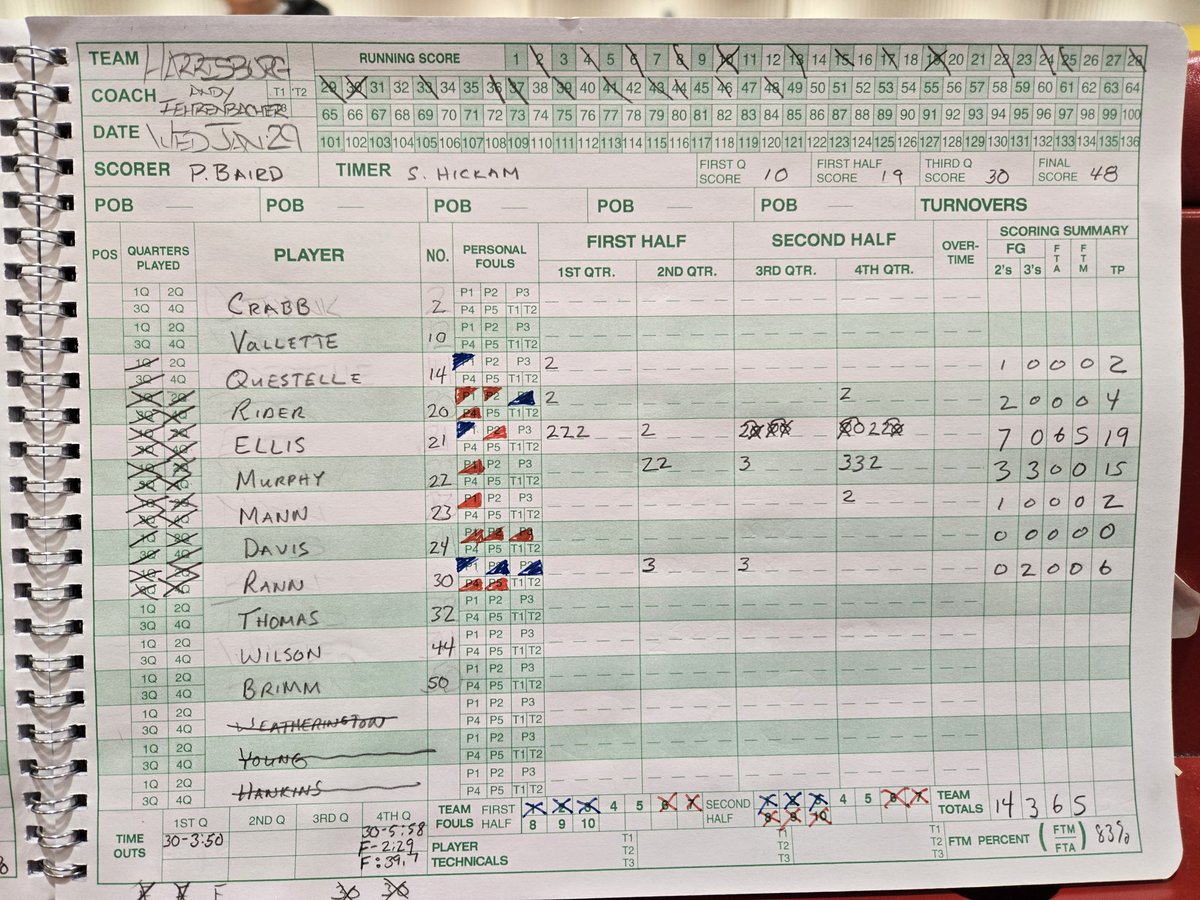 TEAM HARRISBURG RUNNING SCORE 1 2 3 4 5 6 7 8 9 10 11 12 13 14 15 16 17 18 19 20 21 22 23 24 25 26 27 28
COACH ANDY FEHRENBACHER T1 T2 29 30 31 32 33 34 35 36 37 38 39 40 41 42 43 44 45 46 47 48 49 50 51 52 53 54 55 56 57 58 59 60 61 62 63 64
65 66 67 68 69 70 71 72 73 74 75 76 77 78 79 80 81 82 83 84 85 86 87 88 89 90 91 92 93 94 95 96 97 98 99 100
DATE WED JAN 29 101 102 103 104 105 106 107 108 109 110 111 112 113 114 115 116 117 118 119 120 121 122 123 124 125 126 127 128 129 130 131 132 133 134 135 136
SCORER P. BAIRD TIMER S. HICKAM FIRST Q SCORE 10 FIRST HALF SCORE 19 THIRD Q SCORE 30 FINAL SCORE 48
POB — POB — POB — POB — POB — TURNOVERS
POS QUARTERS PLAYED PLAYER NO. PERSONAL FOULS FIRST HALF SECOND HALF OVER-TIME SCORING SUMMARY
1ST QTR. 2ND QTR. 3RD QTR. 4TH QTR. FG 2's 3's FTA FTM TP
1Q 2Q P1 P2 P3
3Q 4Q CRABB 2 P4 P5 T1 T2
1Q 2Q P1 P2 P3
3Q 4Q VALLETTE 10 P4 P5 T1 T2
1Q 2Q P1 P2 P3 2 1 0 0 0 2
3Q 4Q QUESTELLE 14 P4 P5 T1 T2
1Q 2Q P1 P2 P3 2 2 2 0 0 0 4
3Q 4Q RIDER 20 P4 P5 T1 T2
1Q 2Q P1 P2 P3 222 2 7 0 6 5 19
3Q 4Q ELLIS 21 P4 P5 T1 T2
1Q 2Q P1 P2 P3 22 3 332 3 3 0 0 15
3Q 4Q MURPHY 22 P4 P5 T1 T2
1Q 2Q P1 P2 P3 2 1 0 0 0 2
3Q 4Q MANN 23 P4 P5 T1 T2
1Q 2Q P1 P2 P3 0 0 0 0 0
3Q 4Q DAVIS 24 P4 P5 T1 T2
1Q 2Q P1 P2 P3 3 3 0 2 0 0 6
3Q 4Q RANN 30 P4 P5 T1 T2
1Q 2Q P1 P2 P3
3Q 4Q THOMAS 32 P4 P5 T1 T2
1Q 2Q P1 P2 P3
3Q 4Q WILSON 44 P4 P5 T1 T2
1Q 2Q P1 P2 P3
3Q 4Q BRIMM 50 P4 P5 T1 T2
1Q 2Q P1 P2 P3
3Q 4Q WEATHERINGTON P4 P5 T1 T2
1Q 2Q P1 P2 P3
3Q 4Q YOUNG P4 P5 T1 T2
1Q 2Q P1 P2 P3
3Q 4Q HANKINS P4 P5 T1 T2
TIME OUTS 1ST Q 2ND Q 3RD Q 4TH Q TEAM FOULS FIRST HALF 1 2 3 4 5 6 7 SECOND HALF 1 2 3 4 5 6 7 TEAM TOTALS 14 3 6 5
8 9 10 8 9 10
30-3:50 30-5:58
F-2:29
F:39.7
PLAYER TECHNICALS T1 T2 T3 T1 T2 T3 T1 T2 T3 FTM PERCENT (FTM FTA) 83%
F 30 30